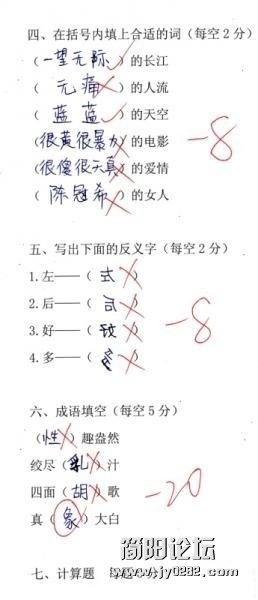 四、在括号内填上合适的词（每空2分）
（一望无际）的长江
（无痛）的人流
（蓝蓝）的天空
（很黄很暴力）的电影
（很傻很天真）的爱情
（陈冠希）的女人
-8
五、写出下面的反义字（每空2分）
1.左——（ ）
2.后——（ ）
3.好——（ ）
4.多——（ ）
-8
六、成语填空（每空5分）
（性）趣盎然
绞尽（乳）汁
四面（胡）歌
真（象）大白
-20
简阳论坛
www.jy0832.com
七、计算题 每题 分）